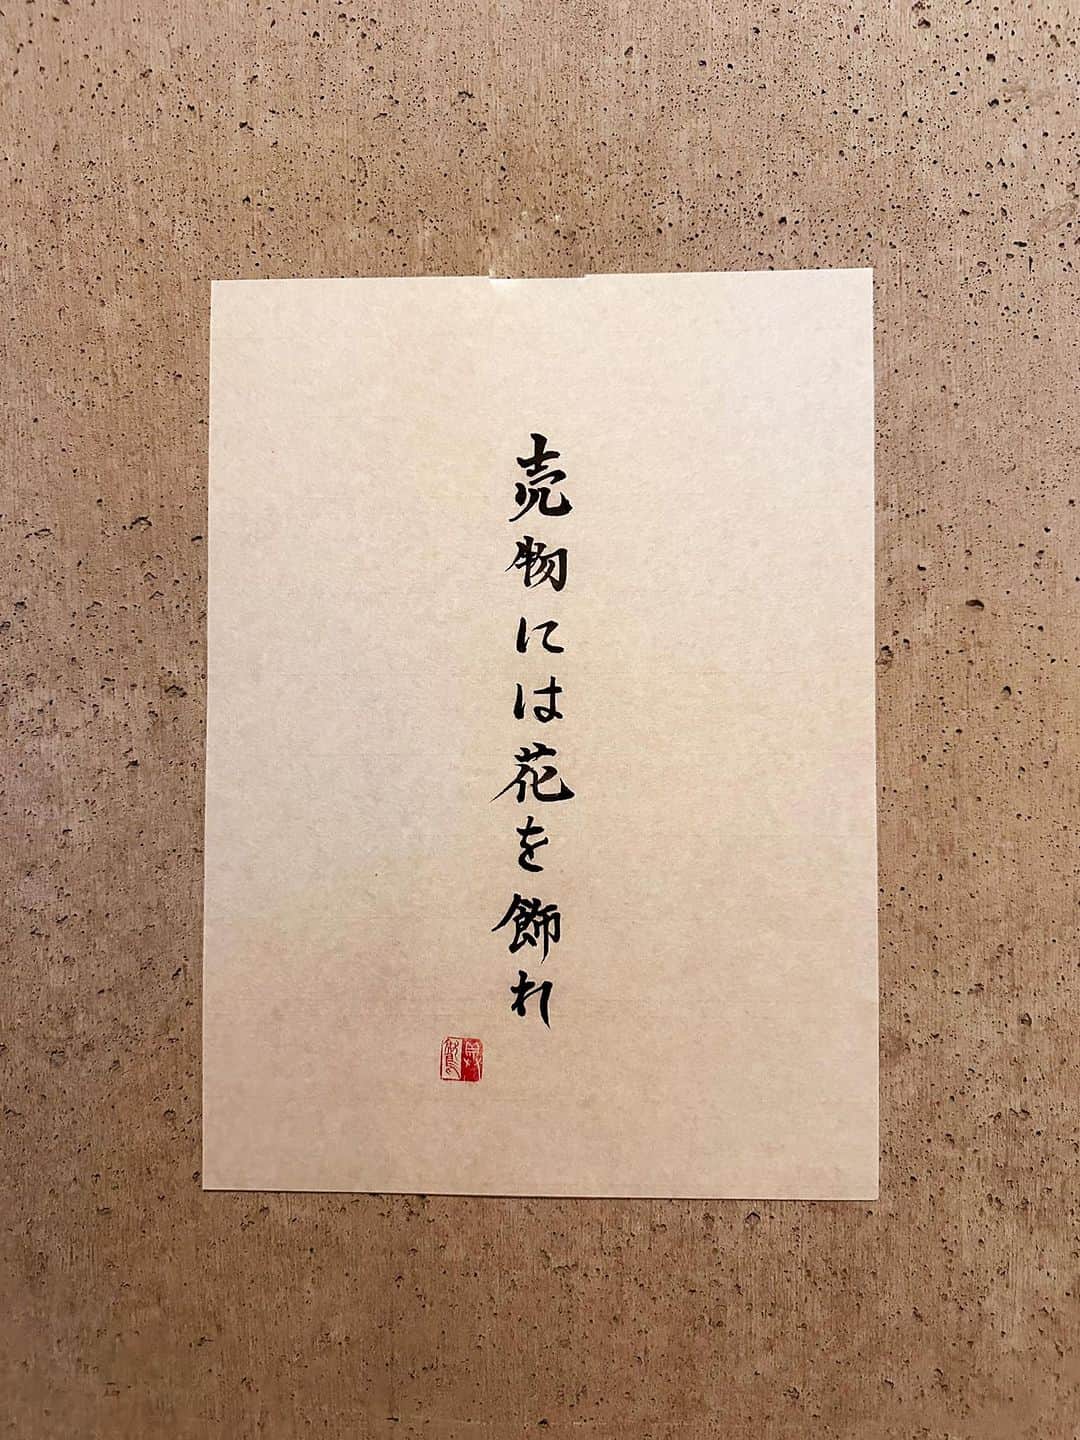 売物には花を飾れ